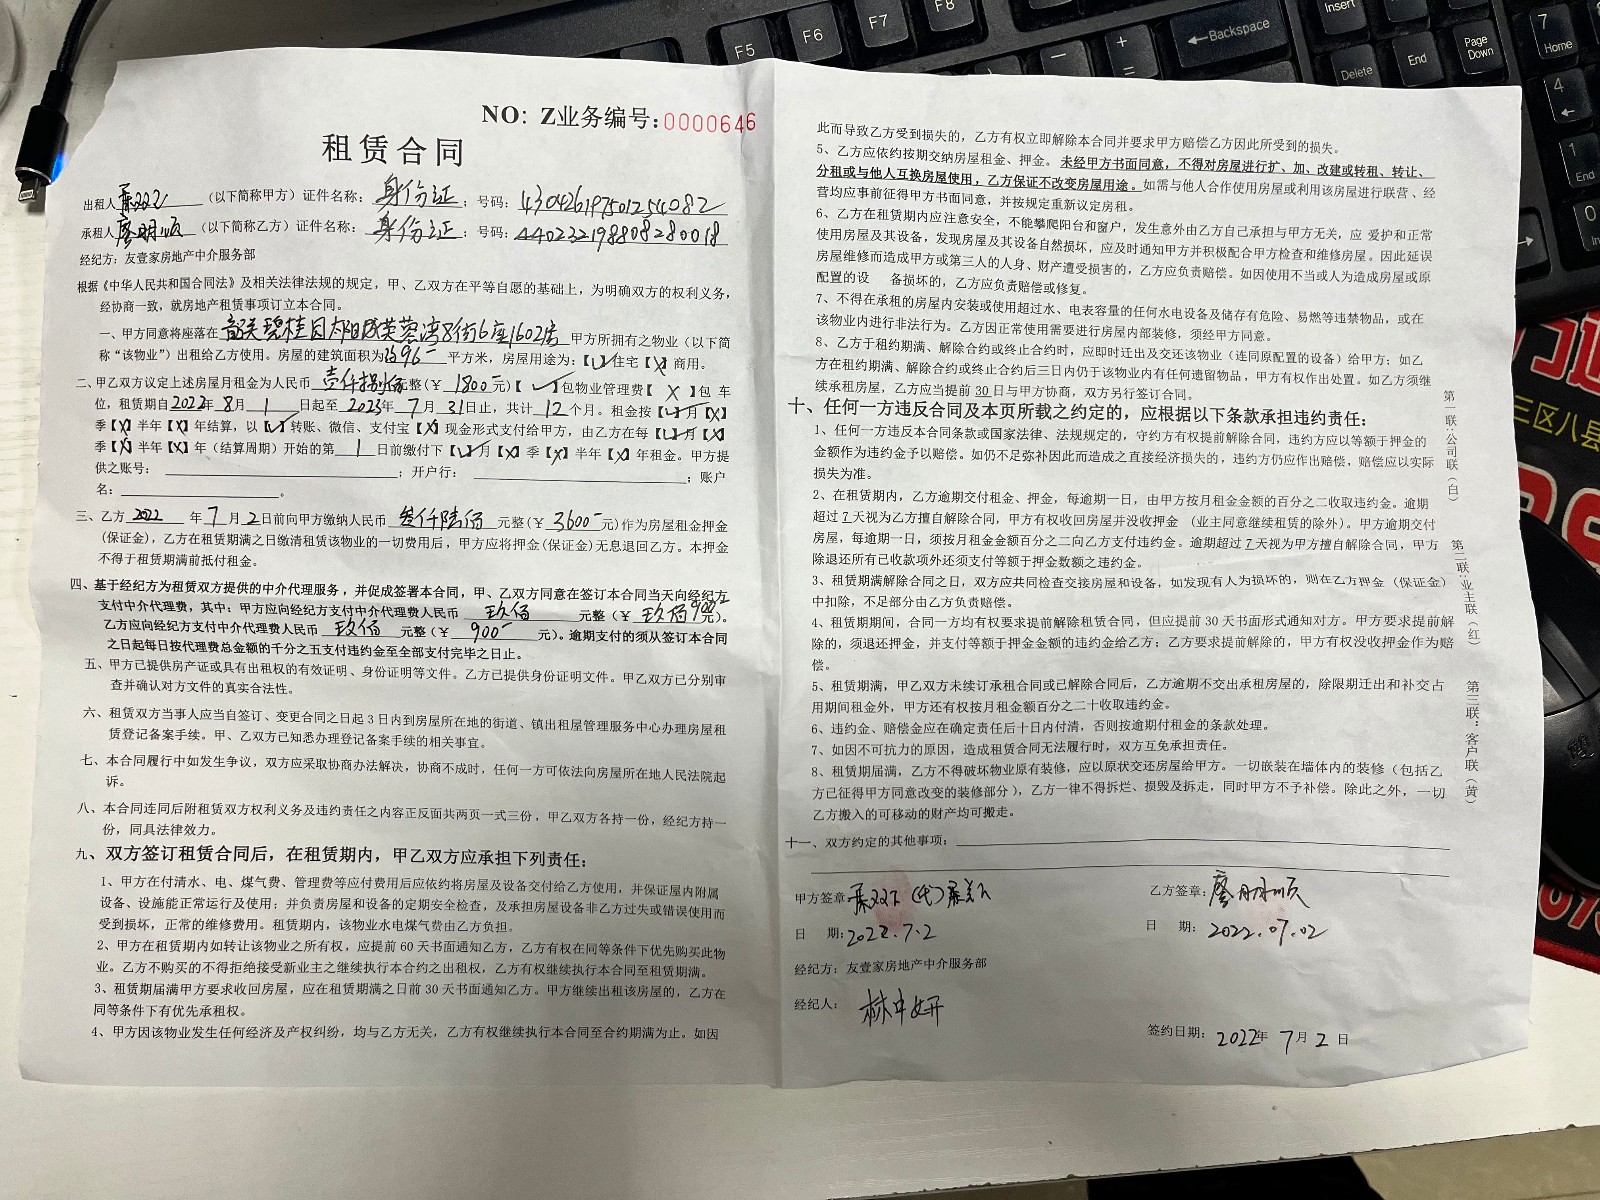 NO: Z业务编号:0000646
租赁合同
出租人 （以下简称甲方）证件名称：身份证；号码：430426197501254082
承租人廖明顺（以下简称乙方）证件名称：身份证；号码：440232198808280018
经纪方：友壹家房地产中介服务部
根据《中华人民共和国合同法》及相关法律法规的规定，甲、乙双方在平等自愿的基础上，为明确双方的权利义务，
经协商一致，就房地产租赁事项订立本合同。
一、甲方同意将座落在韶关碧桂园太阳城芙蓉湾8街6座1602房 甲方所拥有之物业（以下简
称“该物业”）出租给乙方使用。房屋的建筑面积为 平方米，房屋用途为：【√】住宅【X】商用。
二、甲乙双方议定上述房屋月租金为人民币 壹仟捌佰元整(￥ 1800 元)【√】包物业管理费【X】包 车
位，租赁期自2022年8月1日起至2023年7月31日止，共计12个月。租金按【√】月【X】
季【X】半年【X】年结算，以【√】转账、微信、支付宝【X】现金形式支付给甲方，由乙方在每【√】月【X】
季【X】半年【X】年（结算周期）开始的第1日前缴付下【√】月【X】季【X】半年【X】年租金。甲方提
供之账号：；开户行：；账户
名：。
三、乙方2022年7月2日前向甲方缴纳人民币 叁仟陆佰 元整(￥ 3600 元)作为房屋租金押金
(保证金)，乙方在租赁期满之日缴清租赁该物业的一切费用后，甲方应将押金(保证金)无息退回乙方。本押金
不得于租赁期满前抵付租金。
四、基于经纪方为租赁双方提供的中介代理服务，并促成签署本合同，甲、乙双方同意在签订本合同当天向经纪方
支付中介代理费，其中：甲方应向经纪方支付中介代理费人民币 玖佰 元整（￥ 玖佰900元）。
乙方应向经纪方支付中介代理费人民币 玖佰 元整（￥ 900 元）。逾期支付的须从签订本合同
之日起每日按代理费总金额的千分之五支付违约金至全部支付完毕之日止。
五、甲方已提供房产证或具有出租权的有效证明、身份证明等文件。乙方已提供身份证明文件。甲乙双方已分别审
查并确认对方文件的真实合法性。
六、租赁双方当事人应当自签订、变更合同之日起3日内到房屋所在地的街道、镇出租屋管理服务中心办理房屋租
赁登记备案手续。甲、乙双方已知悉办理登记备案手续的相关事宜。
七、本合同履行中如发生争议，双方应采取协商办法解决，协商不成时，任何一方可依法向房屋所在地人民法院起
诉。
八、本合同连同后附租赁双方权利义务及违约责任之内容正反面共两页一式三份，甲乙双方各持一份，经纪方持一
份，同具法律效力。
九、双方签订租赁合同后，在租赁期内，甲乙双方应承担下列责任：
1、甲方在付清水、电、煤气费、管理费等应付费用后应依约将房屋及设备交付给乙方使用，并保证屋内附属
设备、设施能正常运行及使用；并负责房屋和设备的定期安全检查，及承担房屋设备非乙方过失或错误使用而
受到损坏，正常的维修费用。租赁期内，该物业水电煤气费由乙方负担。
2、甲方在租赁期内如转让该物业之所有权，应提前60天书面通知乙方，乙方有权在同等条件下优先购买此物
业。乙方不购买的不得拒绝接受新业主之继续执行本合约之出租权，乙方有权继续执行本合同至租赁期满。
3、租赁期届满甲方要求收回房屋，应在租赁期满之日前30天书面通知乙方。甲方继续出租该房屋的，乙方在
同等条件下有优先承租权。
4、甲方因该物业发生任何经济及产权纠纷，均与乙方无关，乙方有权继续执行本合同至合约期满为止。如因
此而导致乙方受到损失的，乙方有权立即解除本合同并要求甲方赔偿乙方因此所受到的损失。
5、乙方应依约按期交纳房屋租金、押金。未经甲方书面同意，不得对房屋进行扩、加、改建或转租、转让、
分租或与他人互换房屋使用，乙方保证不改变房屋用途。如需与他人合作使用房屋或利用该房屋进行联营、经
营均应事前征得甲方书面同意，并按规定重新议定房租。
6、乙方在租赁期内应注意安全，不能攀爬阳台和窗户，发生意外由乙方自己承担与甲方无关，应 爱护和正常
使用房屋及其设备，发现房屋及其设备自然损坏，应及时通知甲方并积极配合甲方检查和维修房屋。因此延误
房屋维修而造成甲方或第三人的人身、财产遭受损害的，乙方应负责赔偿。如因使用不当或人为造成房屋或原
配置的设 备损坏的，乙方应负责赔偿或修复。
7、不得在承租的房屋内安装或使用超过水、电表容量的任何水电设备及储存有危险、易燃等违禁物品，或在
该物业内进行非法行为。乙方因正常使用需要进行房屋内部装修，须经甲方同意。
8、乙方于租约期满、解除合约或终止合约时，应即时迁出及交还该物业（连同原配置的设备）给甲方；如乙
方在租约期满、解除合约或终止合约后三日内仍于该物业内有任何遗留物品，甲方有权作出处置。如乙方须继
续承租房屋，乙方应当提前30日与甲方协商，双方另行签订合同。
十、任何一方违反合同及本页所载之约定的，应根据以下条款承担违约责任：
1、任何一方违反本合同条款或国家法律、法规规定的，守约方有权提前解除合同，违约方应以等额于押金的
金额作为违约金予以赔偿。如仍不足弥补因此而造成之直接经济损失的，违约方仍应作出赔偿，赔偿应以实际
损失为准。
2、在租赁期内，乙方逾期交付租金、押金，每逾期一日，由甲方按月租金金额的百分之二收取违约金。逾期
超过7天视为乙方擅自解除合同，甲方有权收回房屋并没收押金 (业主同意继续租赁的除外)。甲方逾期交付
房屋，每逾期一日，须按月租金金额百分之二向乙方支付违约金。逾期超过7天视为甲方擅自解除合同，甲方
除退还所有已收款项外还须支付等额于押金数额之违约金。
3、租赁期满解除合同之日，双方应共同检查交接房屋和设备，如发现有人为损坏的，则在乙方押金（保证金）
中扣除，不足部分由乙方负责赔偿。
4、租赁期期间，合同一方均有权要求提前解除租赁合同，但应提前30天书面形式通知对方。甲方要求提前解
除的，须退还押金，并支付等额于押金金额的违约金给乙方；乙方要求提前解除的，甲方有权没收押金作为赔
偿。
5、租赁期满，甲乙双方未续订承租合同或已解除合同后，乙方逾期不交出承租房屋的，除限期迁出和补交占
用期间租金外，甲方还有权按月租金额百分之二十收取违约金。
6、违约金、赔偿金应在确定责任后十日内付清，否则按逾期付租金的条款处理。
7、如因不可抗力的原因，造成租赁合同无法履行时，双方互免承担责任。
8、租赁期届满，乙方不得破坏物业原有装修，应以原状交还房屋给甲方。一切嵌装在墙体内的装修（包括乙
方已征得甲方同意改变的装修部分），乙方一律不得拆烂、损毁及拆走，同时甲方不予补偿。除此之外，一切
乙方搬入的可移动的财产均可搬走。
十一、双方约定的其他事项：
甲方签章： 乙方签章：廖明顺
日 期：2022.7.2 日 期：2022.07.02
经纪方：友壹家房地产中介服务部
经纪人：
签约日期：2022年7月2日
第一联：公司联（白）
第二联：业主联（红）
第三联：客户联（黄）
F5
F6
F7
F8
←Backspace
Insert
Delete
End
Page
Down
7
Home
4
←
1
End
0
Ins
+
=
三区八县